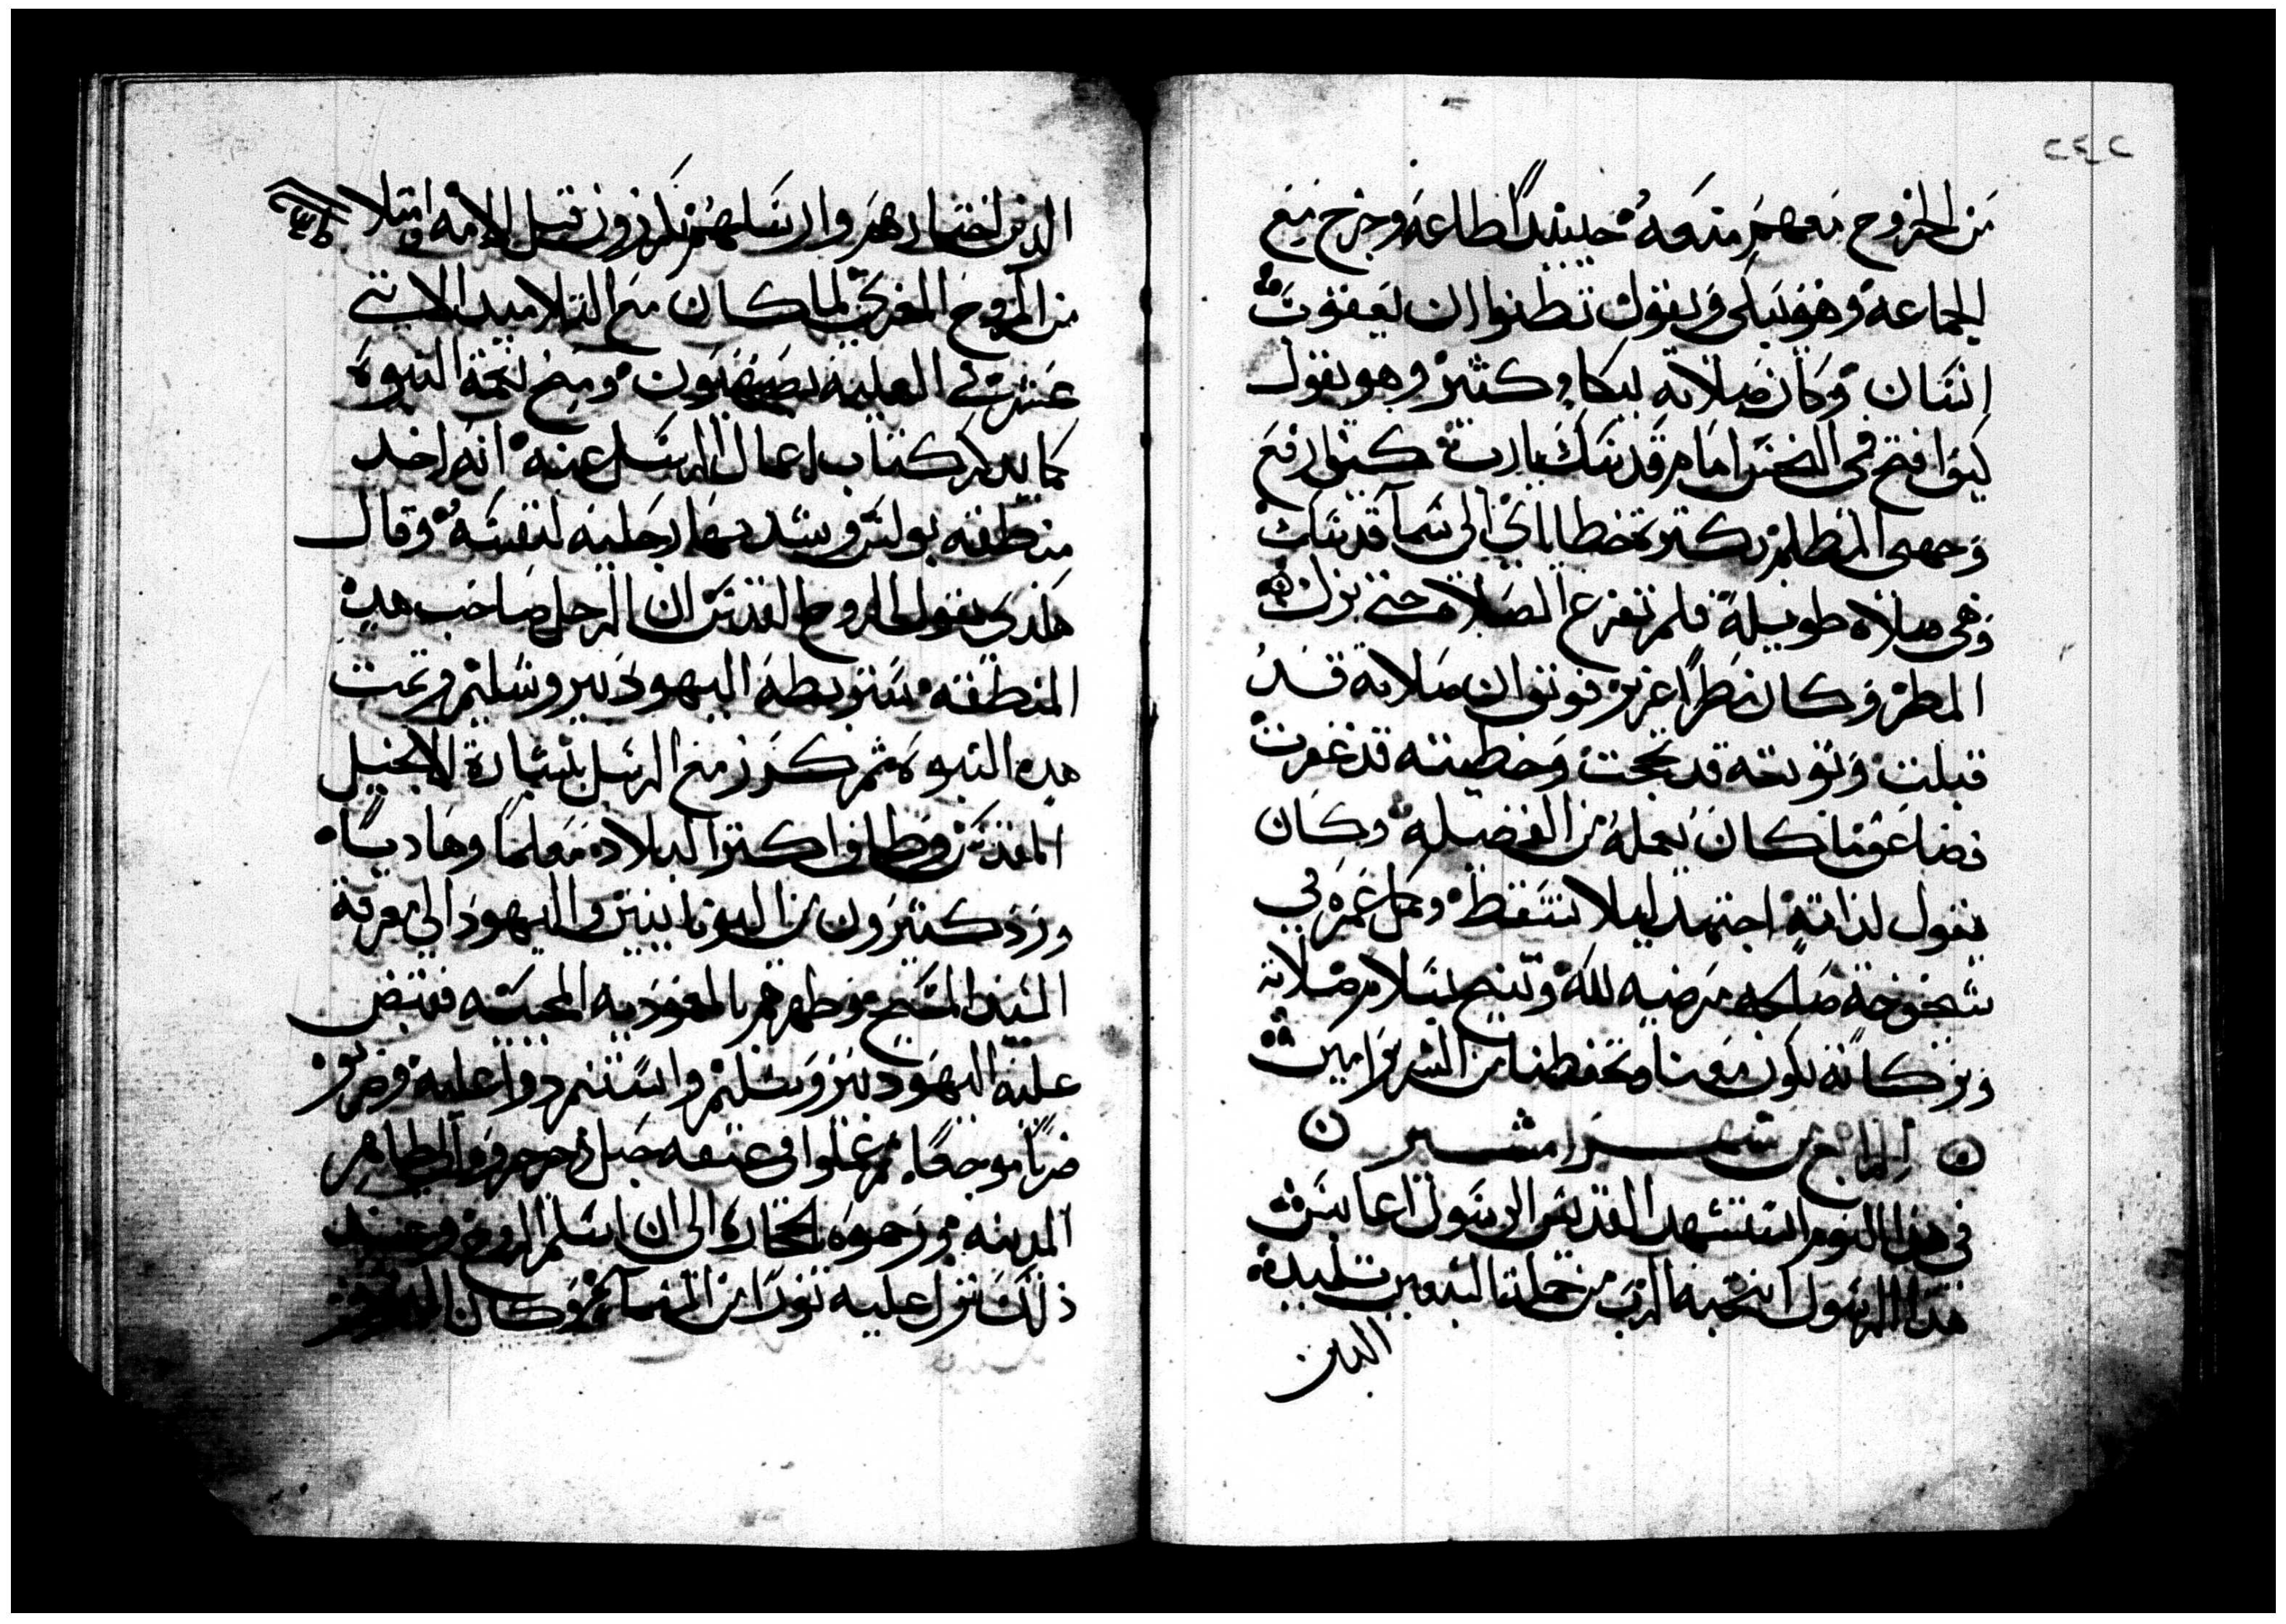 من الخروج معهم منعه حينيدًا طاعه وخرج مع
الجماعه وهو يبكي ويقول تظنوا ان يعقوب
انسان وكان صلاته ببكا وكثير وهو يقول
كيف افتح فمي النجس امام قدسك يارب كيف ارفع
وجهي المظلم بكترة خطاياي الى سما قدسك
وهي صلاه طويله فلم تفرغ الصلاه حتى نزل
المطر وكان مطرًا غزير فوتق ان صلاته قد
قبلت وتوبته قد نجحت وخطيته قد غفرت
فضاعف ما كان يعمله من الفضيله وكان
يقول لذاته اجتهد ليلا تسقط وكمل عمره في
شيخوخه صالحه مرضيه لله وتنيح بسلام صلاته
وبركاته تكون معنا وتحفظنا من الشرير امين
الرابع من شهر امشير
في هذا اليوم استشهد القديس الرسول اغابس
هذا الرسول انتخبه الرب من جملة السبعين تلميد
الدين
الدين اختارهم وارسلهم يكرزون قبل الامه وامتلا
من الروح المعزي لما كان مع التلاميد الاتني
عشر في العليه بصهيون ومنح نعمة النبوه
كما يدكر كتاب اعمال الرسل عنه انه اخد
منطقه بولس وشد بها رجليه لنفسه وقال
هكدي يقول الروح القدس ان الرجل صاحب هده
المنطقه ستربطه اليهود بيروشليم وتمت
هده النبوه ثم كرز مع الرسل بشارة الانجيل
المقدس وطاف اكتر البلاد معلمًا وهاديًا
ورد كثيرون من اليونانيين واليهود الى معرفة
السيد المسيح وطهرهم بالمعموديه المحييه فقبض
عليه اليهود بيروشليم واستمردوا عليه وضربوه
ضربًا موجعًا ثم غلوا في عنقه حبل وجروه الى ظاهر
المدينه ورجموه بالحجاره الى ان اسلم الروح وعند
ذلك نزل عليه نورًا من السما وكان